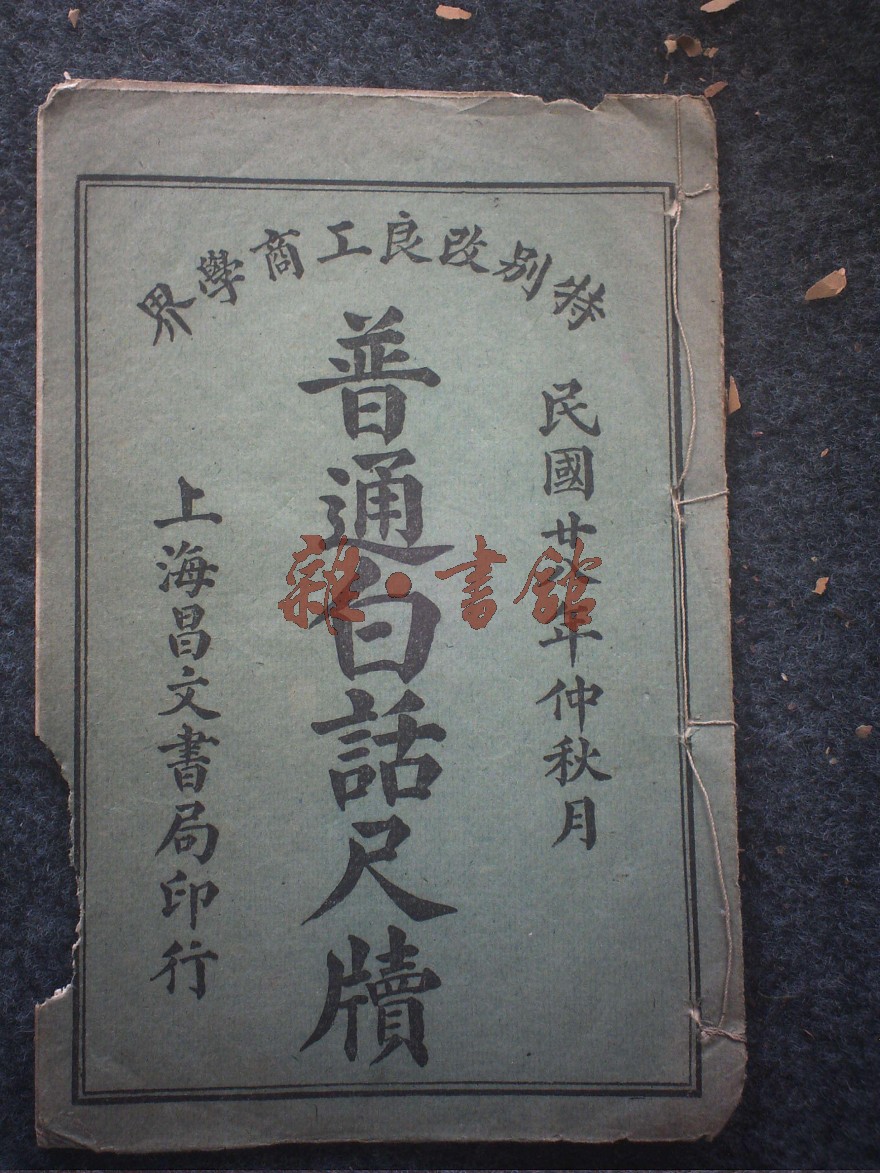 特別改良工商學界
民國廿八年仲秋月
普通白話尺牘
上海昌文書局印行
雜·書館